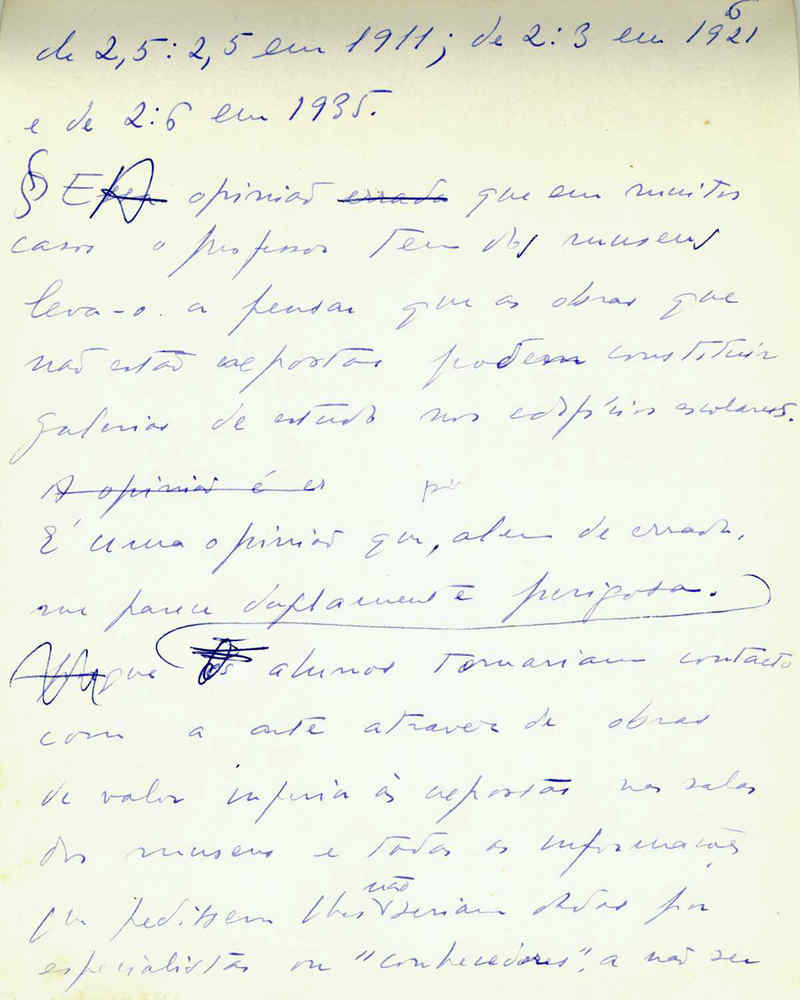 de 2,5:2,5 em 1911; de 2:3 em 1921
6
e de 2:6 em 1935.
§ A opinião errada que em muitos
casos o professor tem dos museus
leva-o a pensar que as obras que
não estão expostas podem constituir
galerias de estudo nos edifícios escolares.
A opinião é er pi
É uma opinião que, alem de errada,
me parece duplamente perigosa.
que os alunos tomariam contacto
com a arte atravez de obras
de valor inferior às expostas nas salas
dos museus e todas as informações
não
que pedissem lhes seriam dadas por
especialistas ou "conhecedores", a não ser